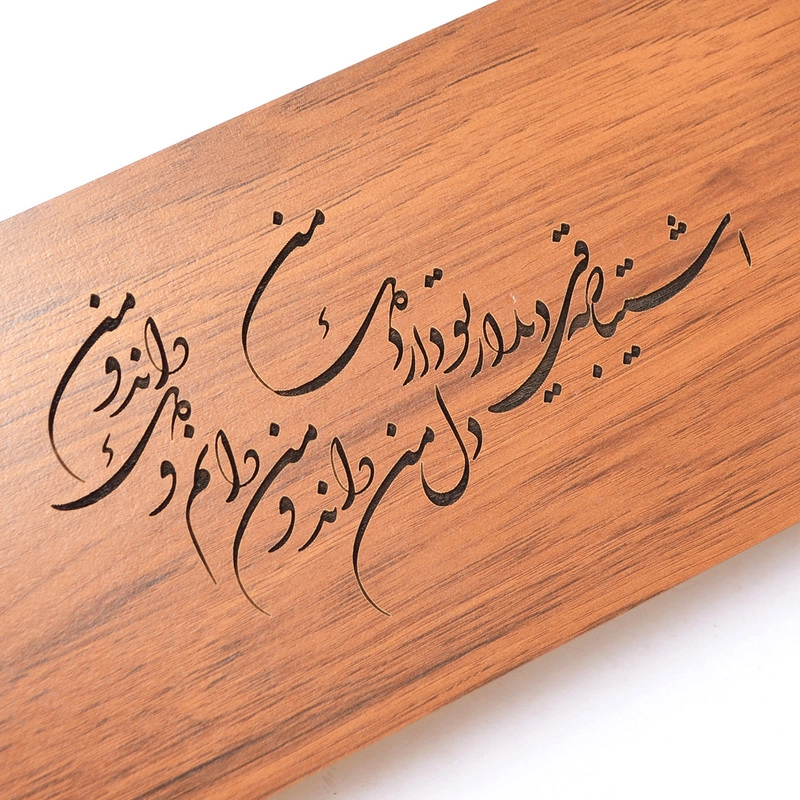 اشتیاقی که به دیدار تو دارد دل من
دل من داند و من دانم و دل داند و من